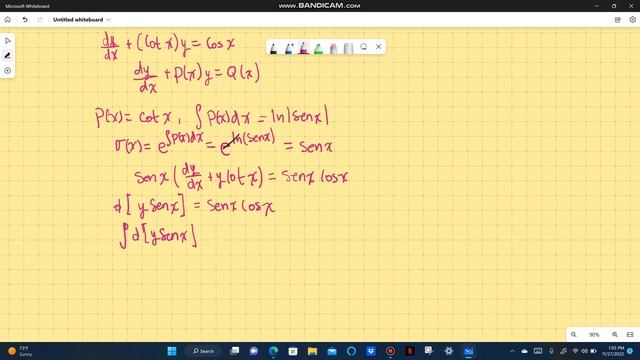 WWW.BANDICAM.COM
Microsoft Whiteboard
Untitled whiteboard
dy/dx + (cot x)y = cos x
dy/dx + P(x)y = Q(x)
P(x) = cot x, ∫ P(x)dx = ln|sen x|
σ(x) = e^∫P(x)dx = e^ln(sen x) = sen x
sen x (dy/dx + y cot x) = sen x cos x
d[y sen x] = sen x cos x
∫ d[y sen x]
90%
73°F
Sunny
Search
1:05 PM
11/27/2022